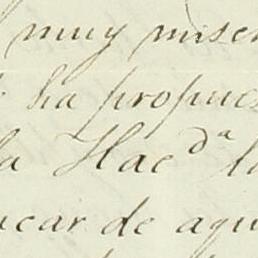 muy miser
ha propues
la Hac.da l
ucar de aqu